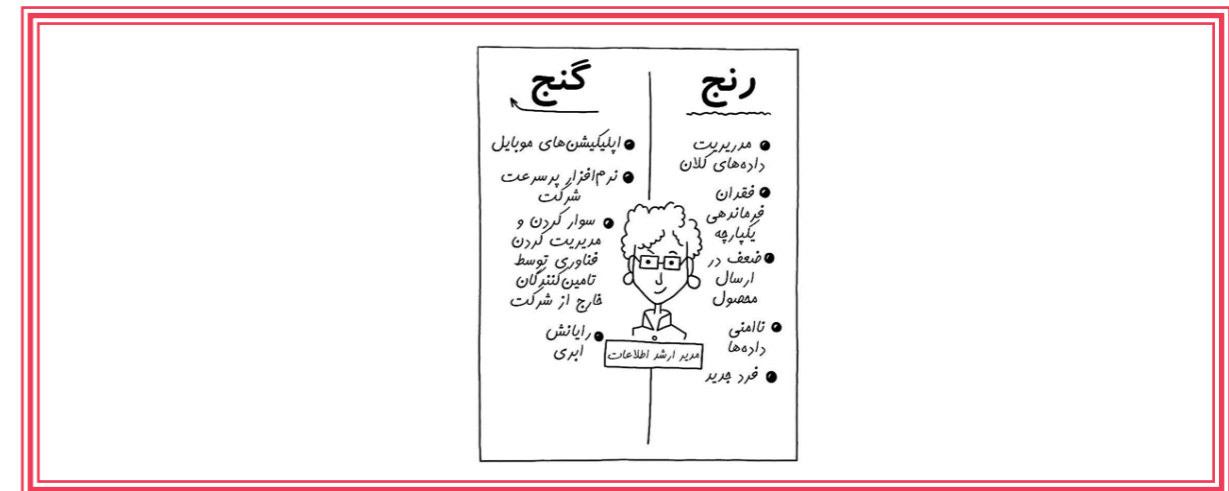 رنج
مدریریت
داده‌های کلان
فقدان
فرماندهی
یکپارچه
ضعف در
ارسال
محصول
ناامنی
داده‌ها
فرد جدید
گنج
اپلیکیشن‌های موبایل
نرم‌افزار پرسرعت
شرکت
سوار کردن و
مدیریت کردن
فناوری توسط
تامین‌کنندگان
خارج از شرکت
رایانش
ابری
مدیر ارشد اطلاعات